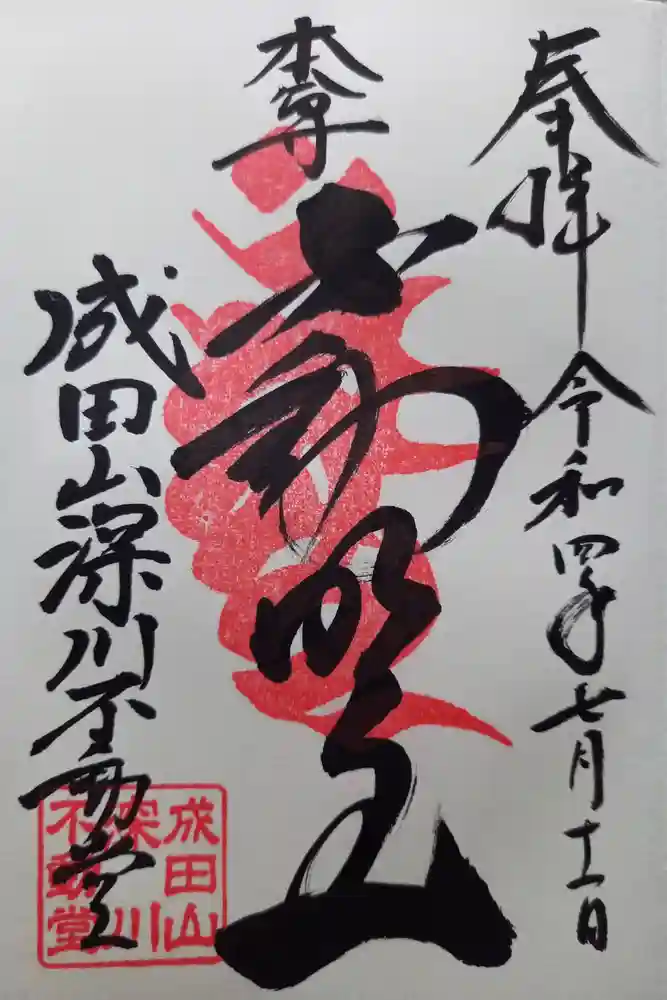 奉拝 令和四年七月十一日
本尊
不動明王
成田山深川不動堂
成田山
深川
不動堂